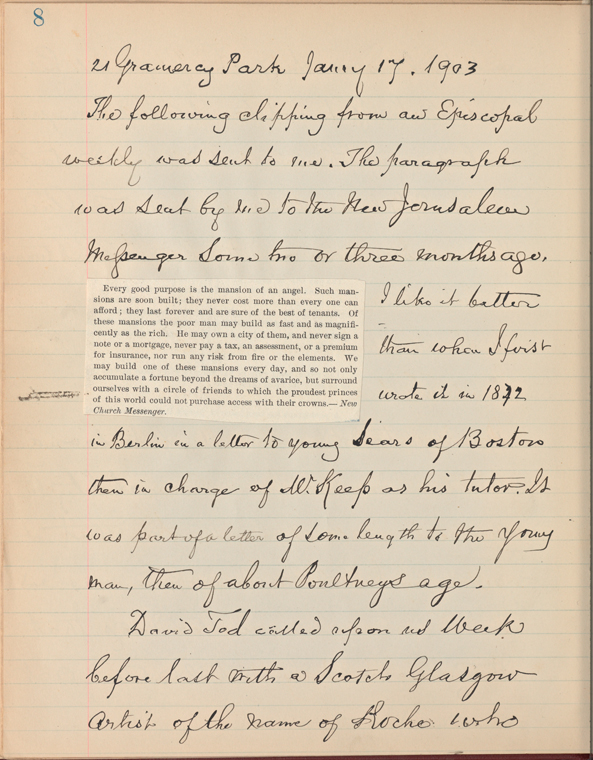 8
21 Gramercy Park Jany 17. 1903
The following clipping from an Episcopal
weekly was sent to me. The paragraph
was sent by me to the New Jerusalem
Messenger some two or three months ago.
Every good purpose is the mansion of an angel. Such man-
sions are soon built; they never cost more than every one can
afford; they last forever and are sure of the best of tenants. Of
these mansions the poor man may build as fast and as magnifi-
cently as the rich. He may own a city of them, and never sign a
note or a mortgage, never pay a tax, an assessment, or a premium
for insurance, nor run any risk from fire or the elements. We
may build one of these mansions every day, and so not only
accumulate a fortune beyond the dreams of avarice, but surround
ourselves with a circle of friends to which the proudest princes
of this world could not purchase access with their crowns.— New
Church Messenger.
I like it better
than when I first
wrote it in 18
in Berlin in a letter to young Sears of Boston
then in charge of Mr. Keep as his tutor. It
was part of a letter of some length to the young
man, then of about Poultneys age.
David Tod called upon us week
before last with a Scotch Glasgow
artist of the name of Roche who